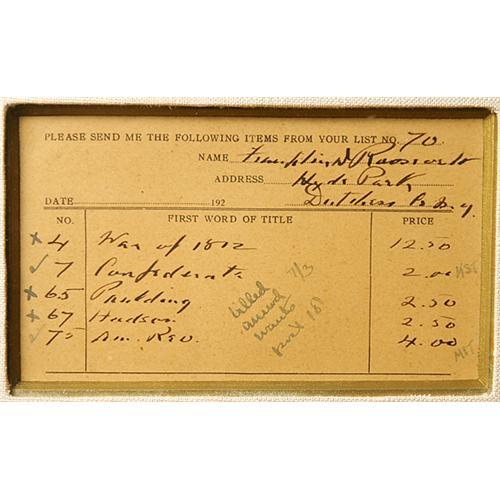 PLEASE SEND ME THE FOLLOWING ITEMS FROM YOUR LIST NO. 70
NAME Franklin D Roosevelt
ADDRESS Hyde Park
DATE 192 Dutchess Co N.Y.
NO. FIRST WORD OF TITLE PRICE
x 4 War of 1812 12.50
✓ 7 Confederate 7/3 2.00
x 65 Paulding 2.50
x 67 Hudson 2.50
75 Am. Rev. 4.00
billed
wants